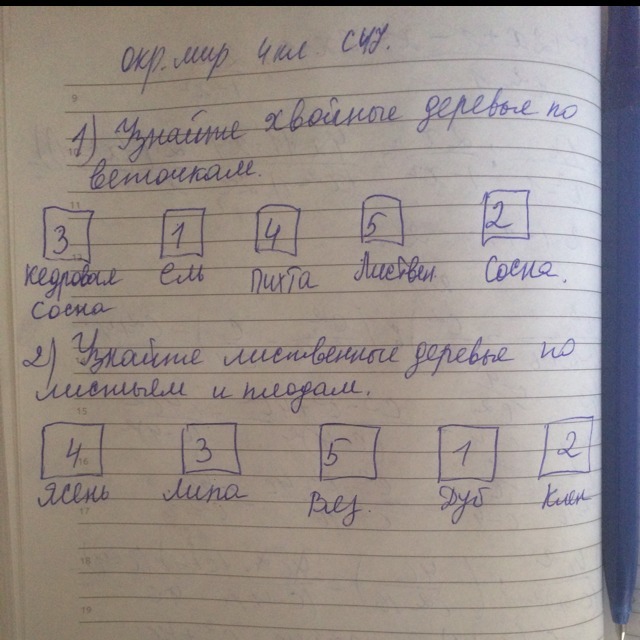 окр. мир 4 кл. С47.
1) Узнайте хвойные деревья по
веточкам.
3 1 4 5 2
кедровая Ель Пихта Листвен. Сосна.
сосна
2) Узнайте лиственные деревья по
листьям и плодам.
4 3 5 1 2
Ясень Липа Вяз. Дуб Клен
9
10
11
12
15
16
17
18
19